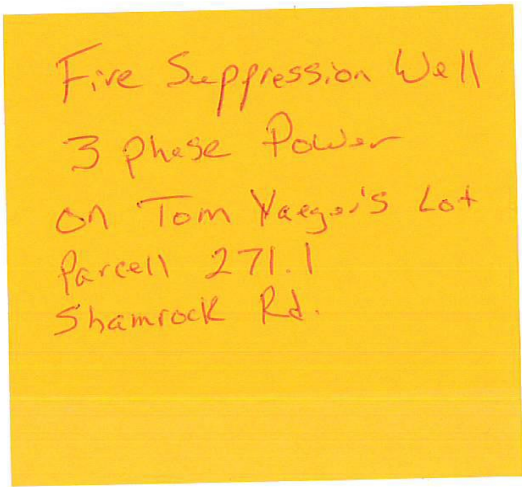 Fire Suppression Well
3 phase Power
on Tom Yaeger's Lot
Parcell 271.1
Shamrock Rd.